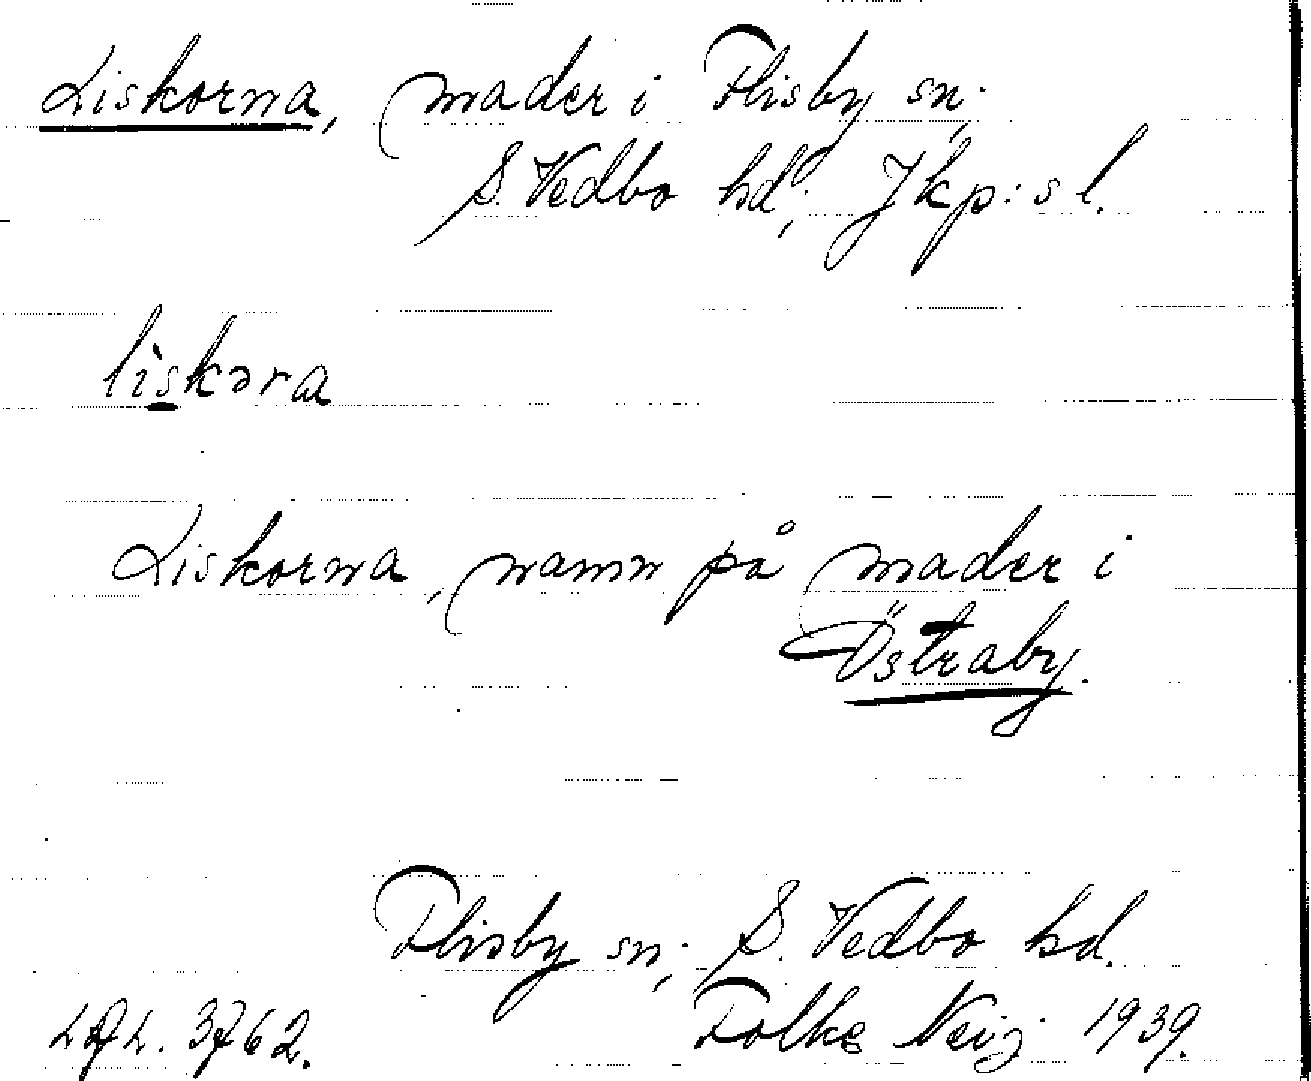 Liskorna, mader i Flisby sn;
S. Vedbo hd; Jkp:s l.
lìskəra
Liskorna, namn på mader i
Östraby.
Flisby sn; S. Vedbo hd.
3762. Folke Neij 1939.